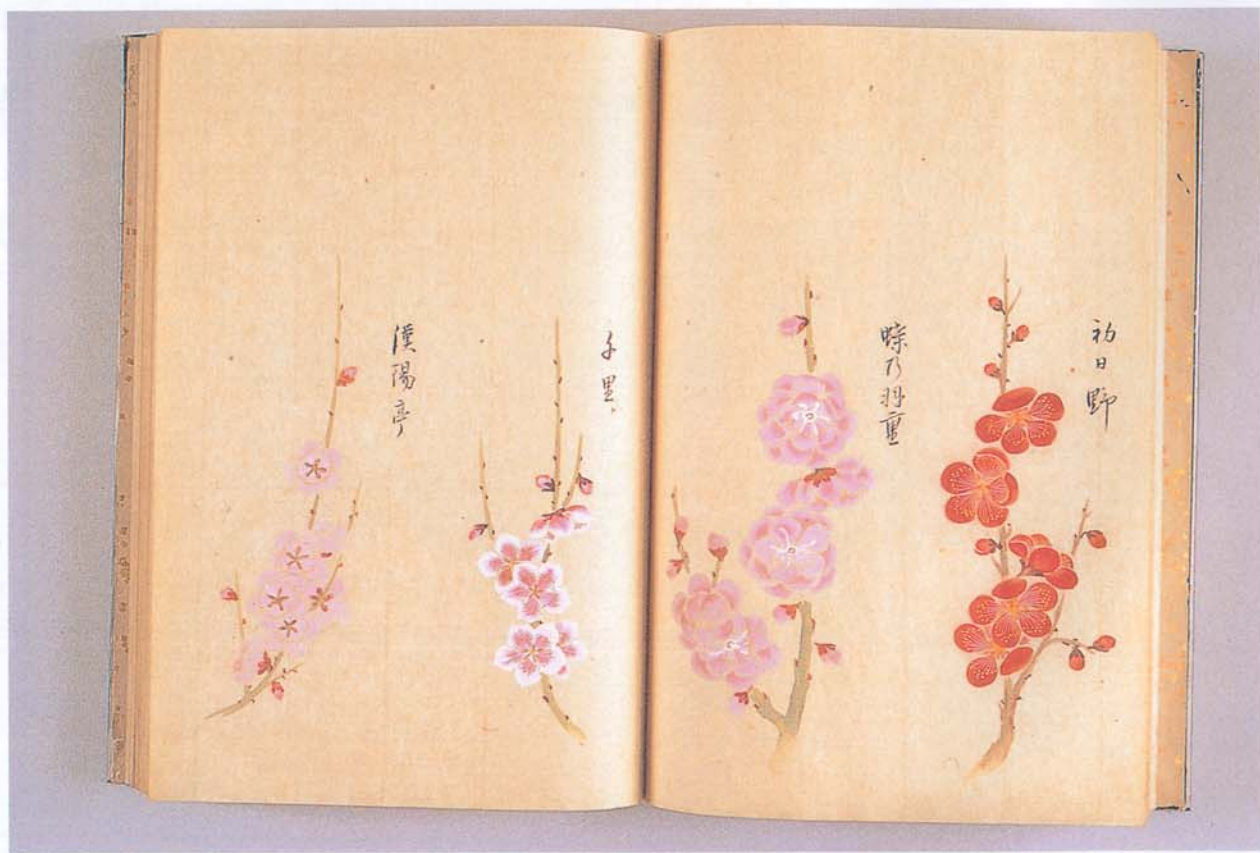 初日野
蝶乃羽重
千里
漢陽亭